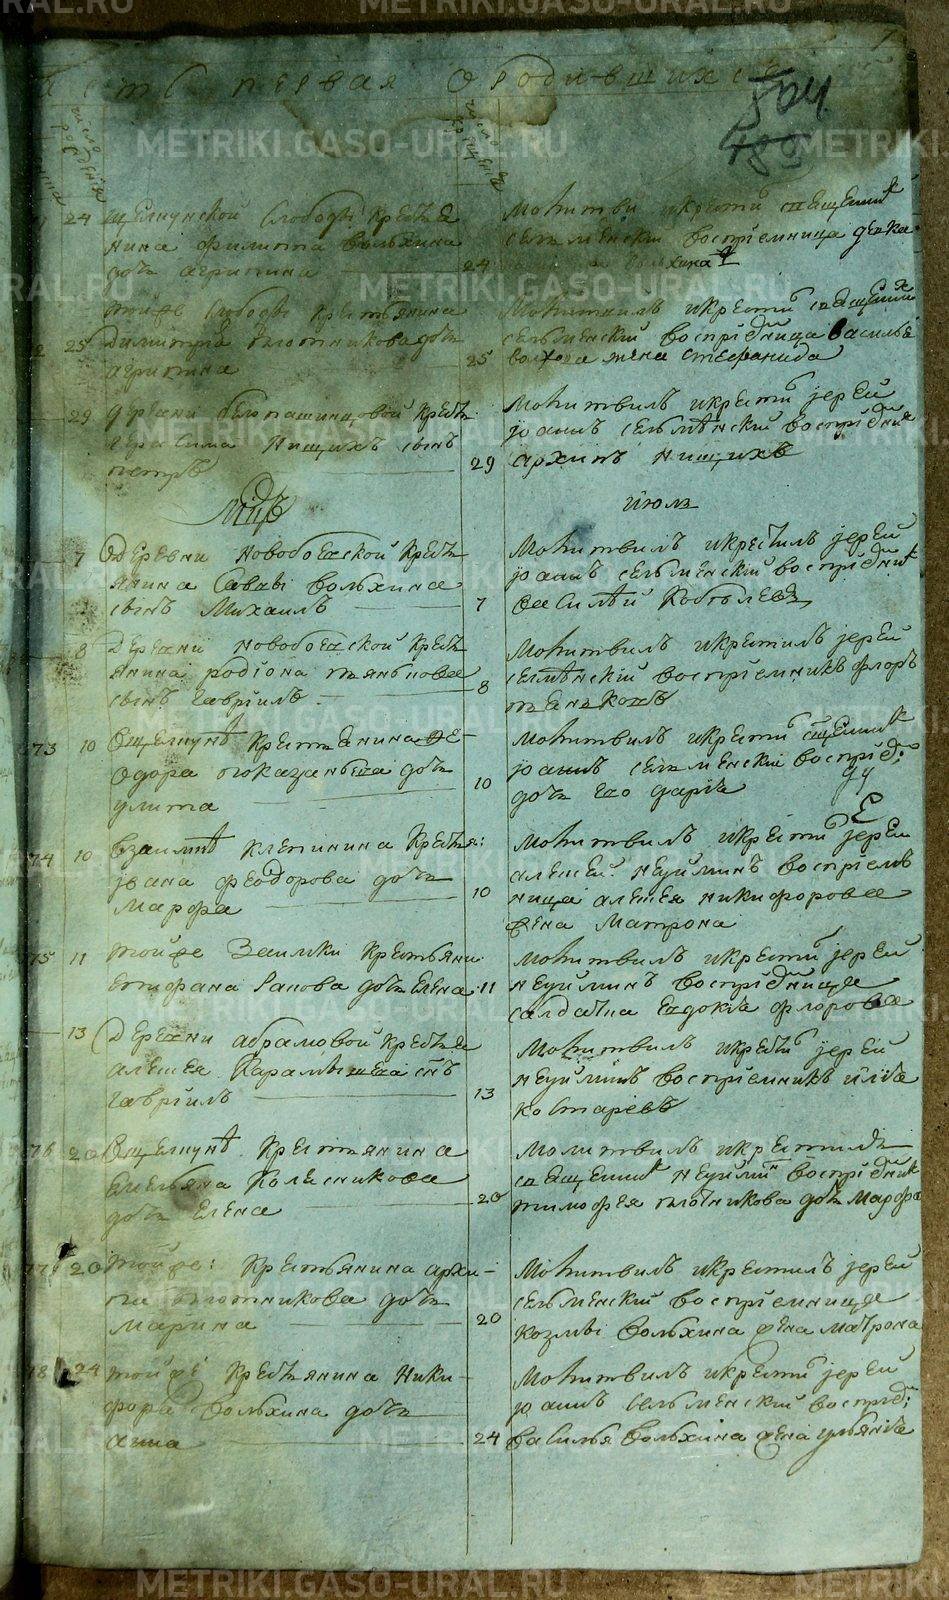 METRIKI.GASO-URAL.RU
часть первая о родившихся
504
489
24 Щелкунской слободы крестья
нина Филипа Вольхина
дочь Агрипина
24
молитвилъ и крестилъ священникъ
сельменскій воспріемница девка
Вольхина
25 тойже слободы крестьянина
Димитріа Плотникова дочь
агрипина
25
Молитвилъ и крестилъ священникъ
сельменский воспріемница Василья
Волхова жена Стефанида
29 деревни белопашинцовой крестья
Герасима Нищихъ сынъ
петръ
29
Молитвилъ и крестилъ јерей
јоаннъ сельменский воспріемникъ
архипъ нищихъ
Мцъ
июль
7 Деревни новобоевской кресть
янина Саввы Вольхина
сынъ Михаилъ
7
Молитвилъ и крестилъ јерей
јоаннъ сельменский воспріемникъ
Василий Кобылевъ
8 Деревни новобоевской кресть
янина родіона
сынъ гавріилъ
8
Молитвилъ и крестилъ јерей
сельменскій воспріемникъ флоръ
73 10 Вщелкунѣ крестьянина Ѳе-
одора показаньева дочь
улита
10
Молитвилъ и крестилъ священникъ
јоаннъ сельменский воспріем:
дочь Его дарья
74 10 Взаимкѣ клепинина крестья:
јвана феодорова дочь
Марфа
10
Молитвилъ и крестилъ јерей
алексей неуйминъ воспріем
ница алексея никифорова
жена Матрона
75 11 тойже Заимки крестьяни
Стефана Рапова дочь Елена
11
Молитвилъ и крестилъ јерей
неуйминъ воспріемница
салдатка Евдокия флорова
13 Деревни абрамовой крестья
алексея Карамышева снъ
гавріилъ
13
Молитвилъ и крестилъ јерей
неуйминъ воспріемникъ илья
костаревъ
76 20 Вщелкунѣ крестьянина
Емельяна Колесникова
дочь Елена
20
молитвилъ и крестилъ
священникъ неуйминъ воспріемник
тимофея плотникова дочь марфа
77 20 тойже: Крестьянина архи-
па плотникова дочь
марина
20
Молитвилъ и крестилъ јерей
сельменский воспріемница
козмы Вольхина жена матрона
78 24 тойже Крестьянина Ники-
фора Вольхина дочь
анна
24
Молитвилъ и крестилъ јерей
јоаннъ сельменский воспріем:
Василья Вольхина жена ульяна